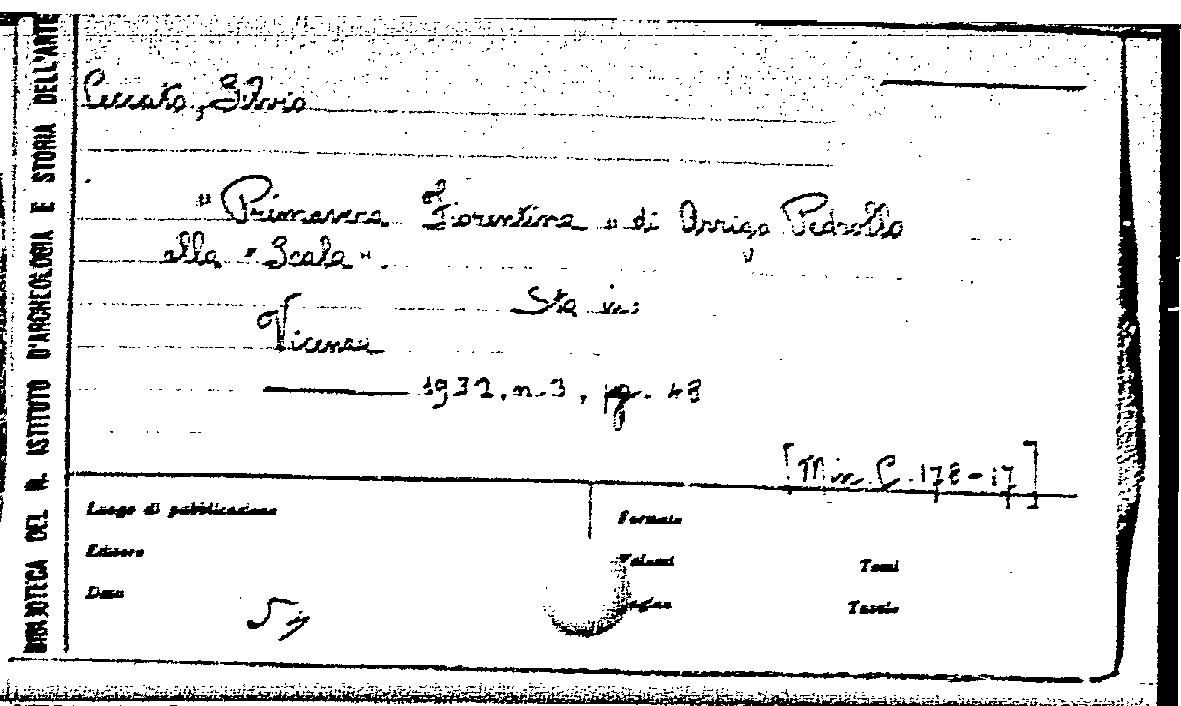 BIBLIOTECA DEL R. ISTITUTO D'ARCHEOLOGIA E STORIA DELL'ARTE
Ceccato, Silvio
"Primavera Fiorentina" di Arrigo Pedrollo
alla "Scala".
Sta in:
Vicenza
1932, n. 3, pg. 48
[Min. C. 178-17]
Luogo di pubblicazione
Formato
Editore
Volumi
Tomi
Data
Pagine
Tavole